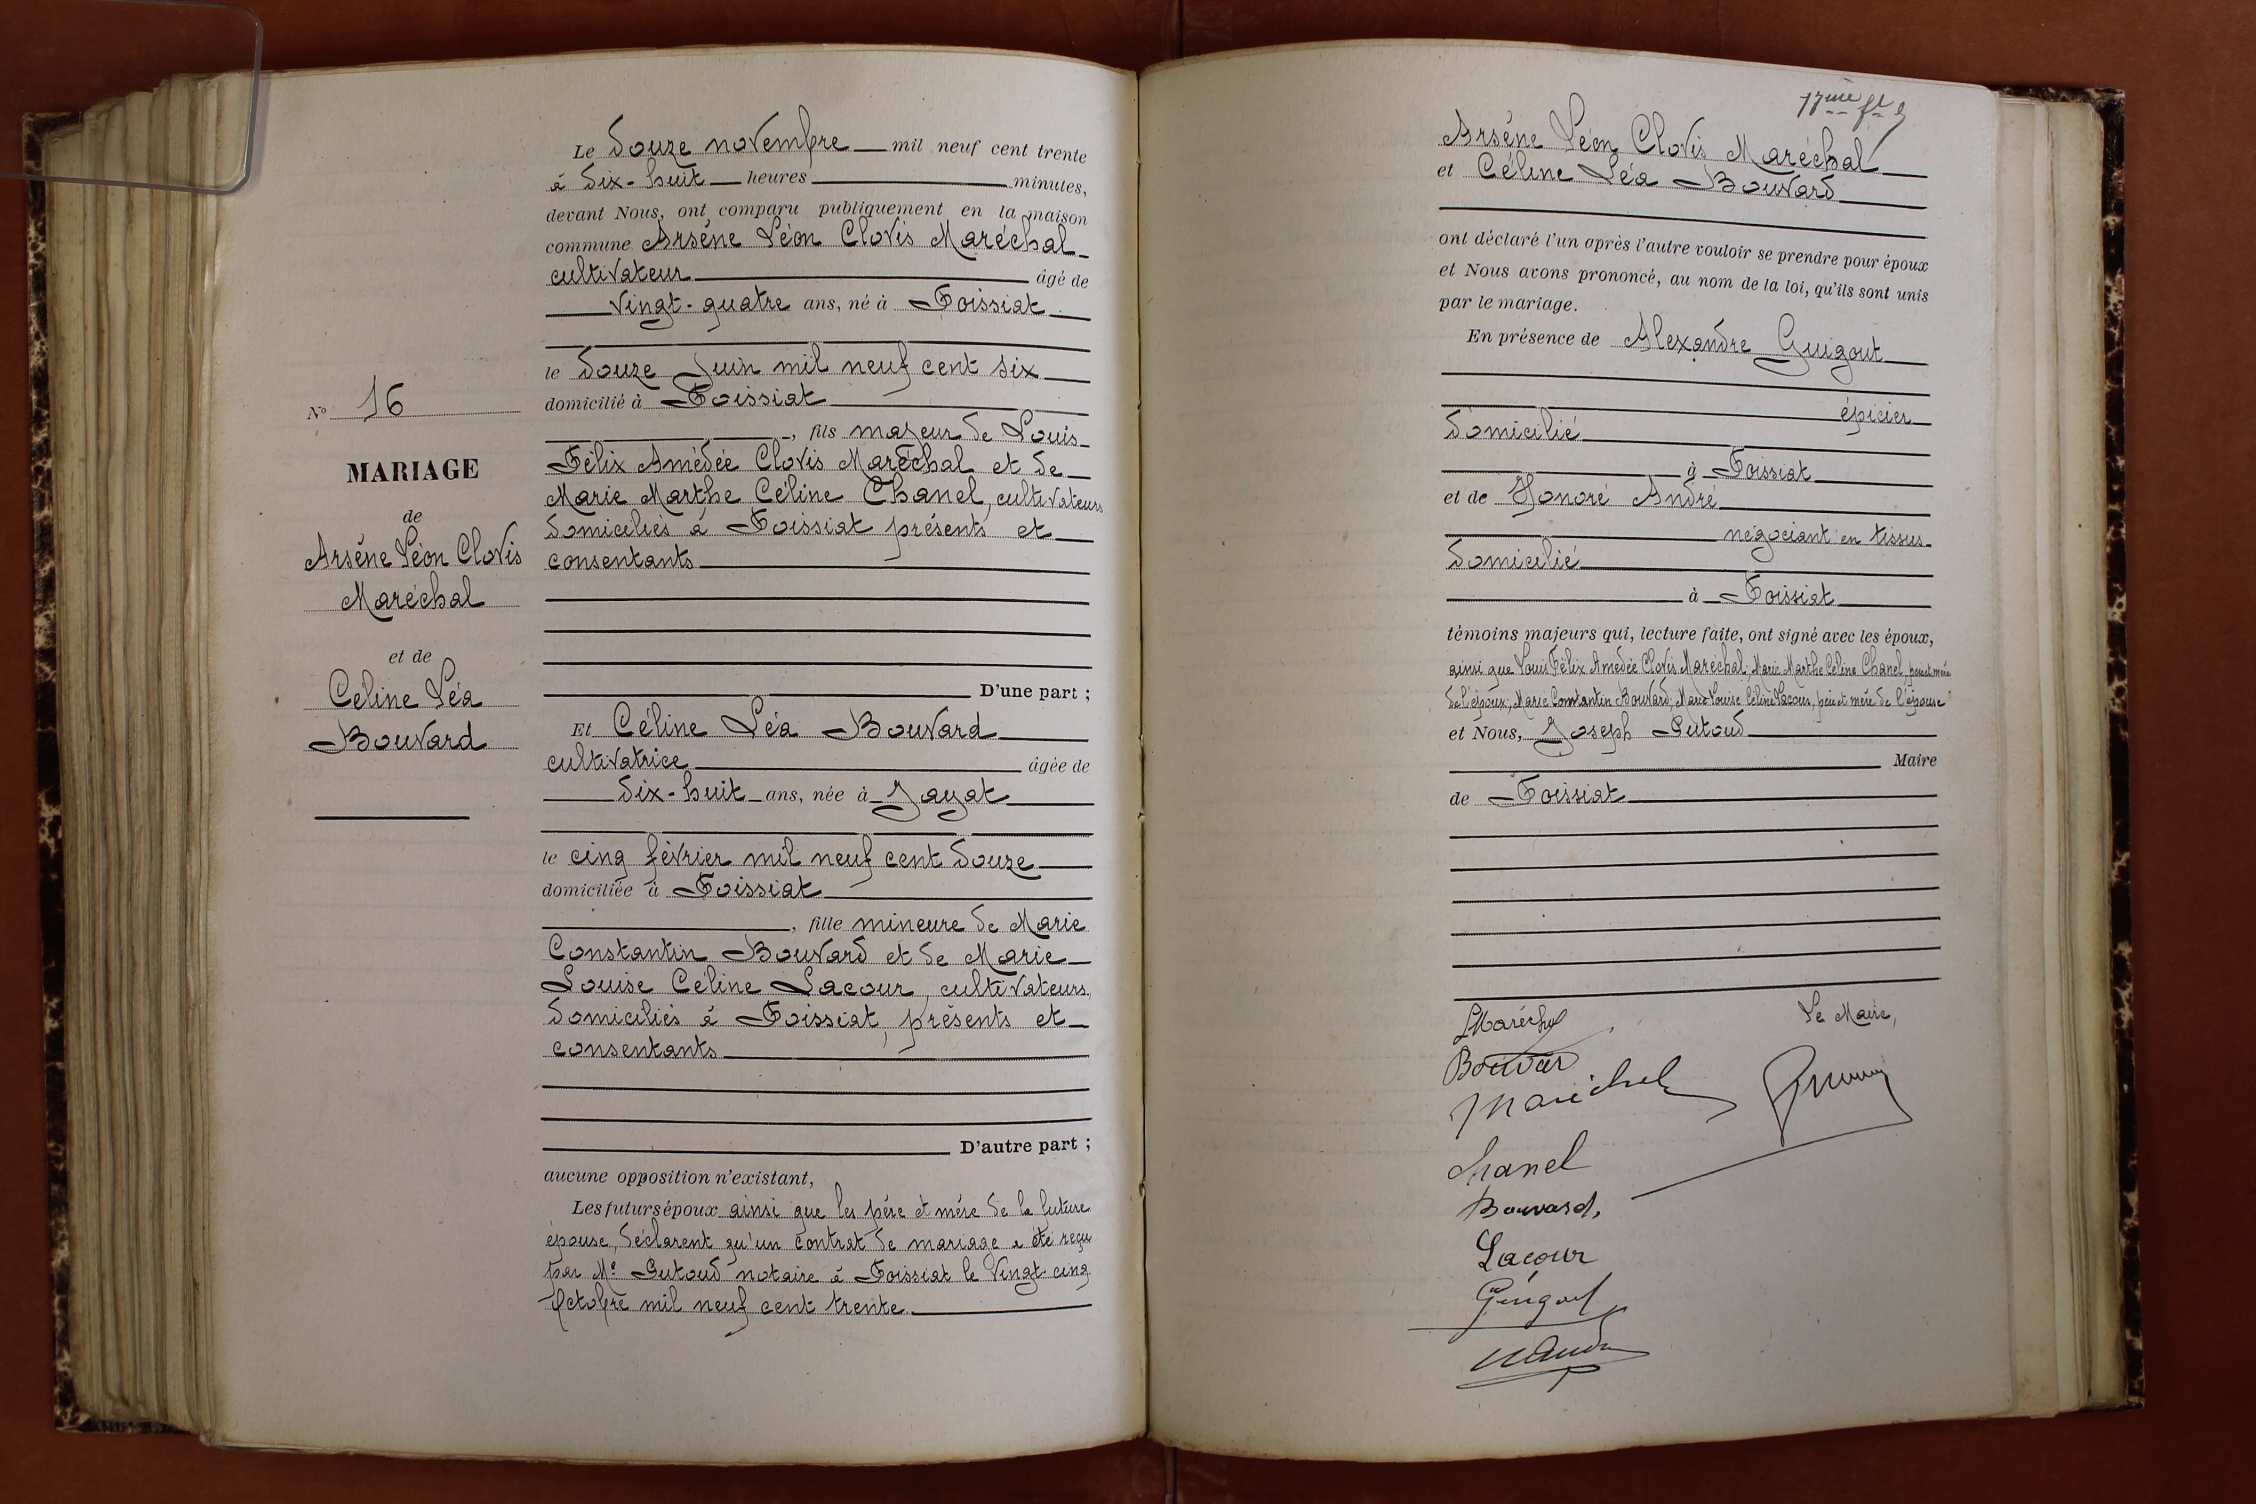 Le douze novembre mil neuf cent trente
à dix-huit heures minutes,
devant Nous, ont comparu publiquement en la maison
commune Arsène Léon Clovis Maréchal
cultivateur âgé de
vingt-quatre ans, né à Foissiat
le douze Juin mil neuf cent six
domicilié à Foissiat
, fils majeur de Louis
Félix Amédée Clovis Maréchal et de
Marie Marthe Céline Chanel, cultivateurs
domiciliés à Foissiat présents et
consentants
D'une part ;
Et Céline Léa Bouvard
cultivatrice âgée de
dix-huit ans, née à Jayat
le cinq février mil neuf cent douze
domiciliée à Foissiat
, fille mineure de Marie
Constantin Bouvard et de Marie
Louise Céline Lacour, cultivateurs
domiciliés à Foissiat, présents et
consentants
D'autre part ;
aucune opposition n'existant,
Les futurs époux ainsi que les père et mère de la future
épouse, déclarent qu'un contrat de mariage a été reçu
par Me notaire à Foissiat le vingt-cinq
Octobre mil neuf cent trente.
No 16
MARIAGE
de
Arsène Léon Clovis
Maréchal
et de
Céline Léa
Bouvard
17me
Arsène Léon Clovis Maréchal
et Céline Léa Bouvard
ont déclaré l'un après l'autre vouloir se prendre pour époux
et Nous avons prononcé, au nom de la loi, qu'ils sont unis
par le mariage.
En présence de Alexandre Guigout
épicier
domicilié
à Foissiat
et de Honoré André
négociant en tissus
domicilié
à Foissiat
témoins majeurs qui, lecture faite, ont signé avec les époux,
ainsi que Louis Félix Amédée Clovis Maréchal, Marie Marthe Céline Chanel, père et mère
de l'époux, Marie Constantin Bouvard, Marie Louise Céline Lacour, père et mère de l'épouse
et Nous, Joseph
Maire
de Foissiat
LMaréchal
Le Maire,
Bouvard
Maréchal
Chanel
Bouvard,
Lacour
Guigout